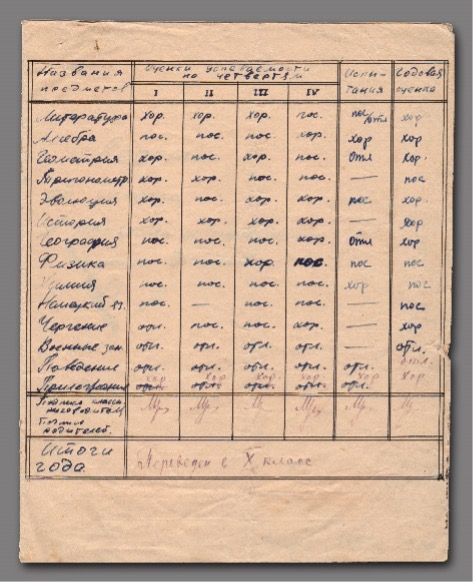 Названия предметов Оценки успеваемости по четвертям Испытания Годовая оценка
I II III IV
Литература хор. хор. хор. пос. пос отл хор
Алгебра пос. пос. пос. пос. хор хор
Геометрия хор. пос. хор. пос. отл хор.
Тригонометр. хор. хор. пос. пос. — пос
Эволюция хор. пос. хор. хор. пос хор
История хор. хор. хор. хор. — хор
География пос. пос. пос. хор. отл хор.
Физика пос. пос. хор. пос. пос пос
Химия пос. пос. пос. пос. хор пос
Немецкий яз. пос. — пос. пос. — пос
Черчение отл. пос. пос. хор. — хор
Военные зан. отл. отл. отл. отл. — отл.
Поведение отл. отл. отл. отл. отл. отл.
хор хор хор хор хор.
Подпись
родителей.
Итоги года Переведен в X класс